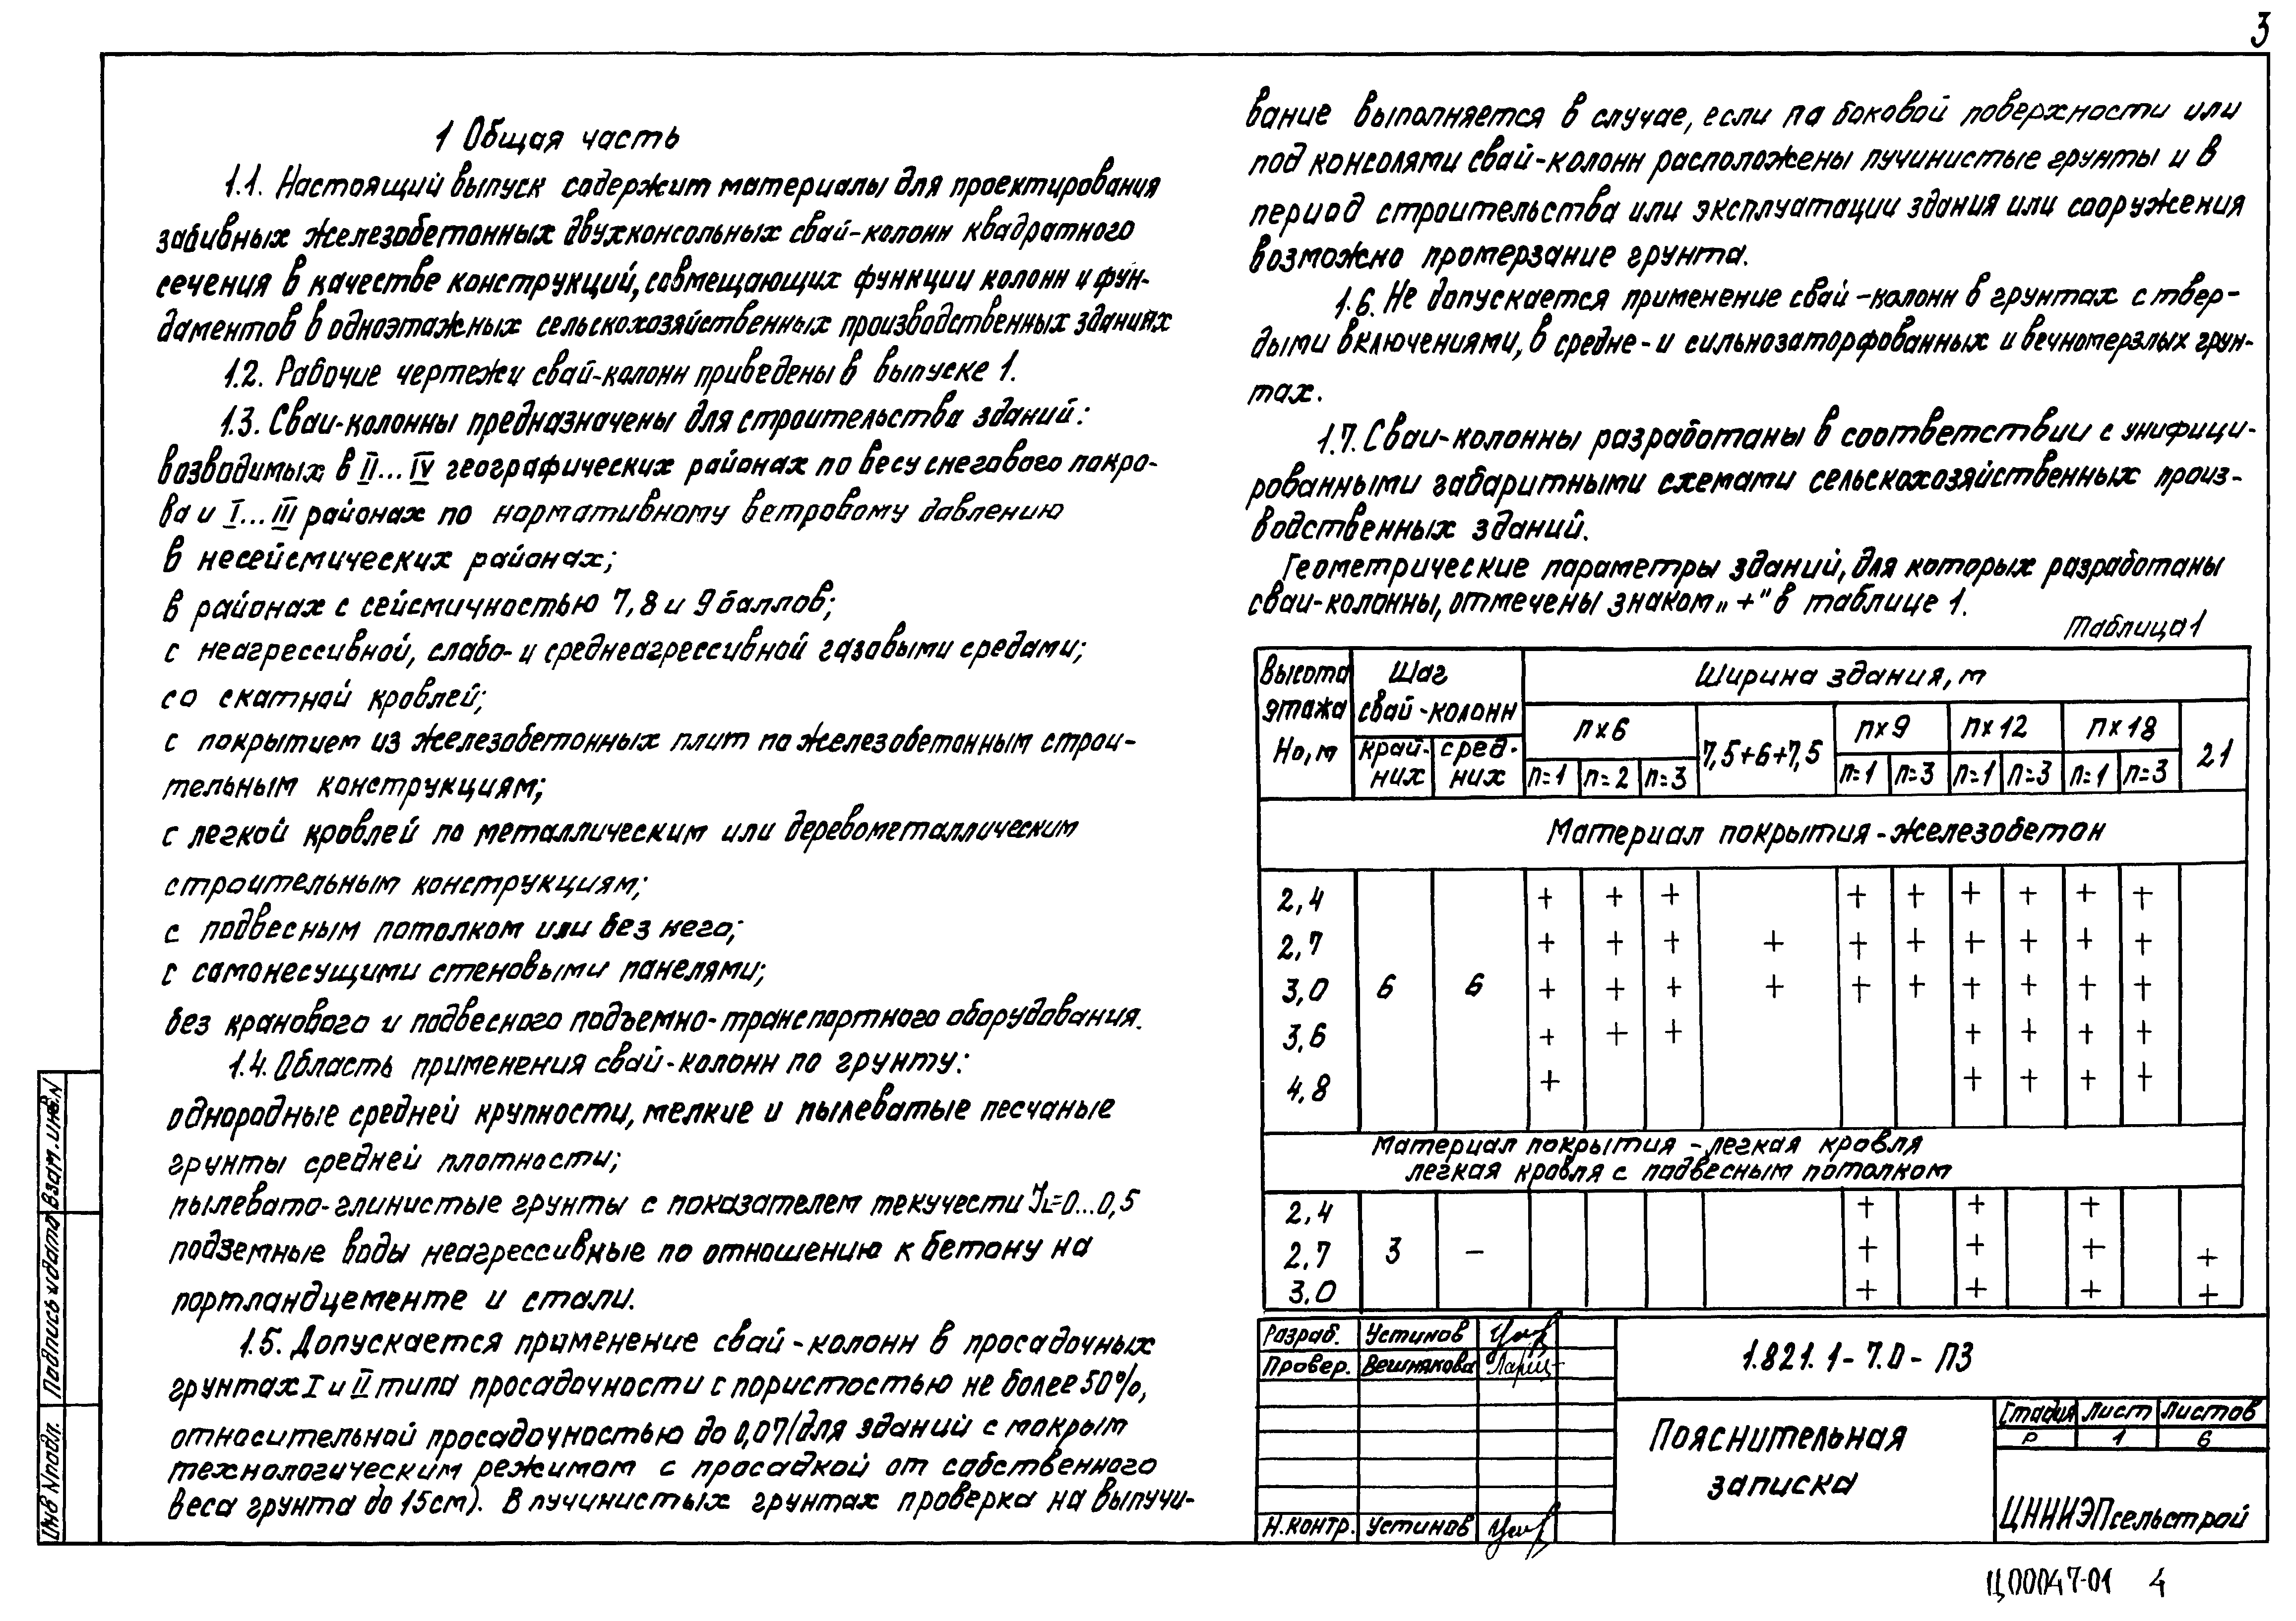 3
1 Общая часть
1.1. Настоящий выпуск содержит материалы для проектирования
забивных железобетонных двухконсольных свай-колонн квадратного
сечения в качестве конструкций, совмещающих функции колонн и фун-
даментов в одноэтажных сельскохозяйственных производственных зданиях
1.2. Рабочие чертежи свай-колонн приведены в выпуске 1.
1.3. Сваи-колонны предназначены для строительства зданий:
возводимых в II...IV географических районах по весу снегового покро-
ва и I...III районах по нормативному ветровому давлению
в несейсмических районах;
в районах с сейсмичностью 7, 8 и 9 баллов;
с неагрессивной, слабо- и среднеагрессивной газовыми средами;
со скатной кровлей;
с покрытием из железобетонных плит по железобетонным строи-
тельным конструкциям;
с легкой кровлей по металлическим или деревометаллическим
строительным конструкциям;
с подвесным потолком или без него;
с самонесущими стеновыми панелями;
без кранового и подвесного подъемно-транспортного оборудования.
1.4. Область применения свай-колонн по грунту:
однородные средней крупности, мелкие и пылеватые песчаные
грунты средней плотности;
пылевато-глинистые грунты с показателем текучести JL=0...0,5
подземные воды неагрессивные по отношению к бетону на
портландцементе и стали.
1.5. Допускается применение свай-колонн в просадочных
грунтах I и II типа просадочности с пористостью не более 50%,
относительной просадочностью до 0,07 (для зданий с мокрым
технологическим режимом с просадкой от собственного
веса грунта до 15см). В пучинистых грунтах проверка на выпучи-
вание выполняется в случае, если па боковой поверхности или
под консолями свай-колонн расположены пучинистые грунты и в
период строительства или эксплуатации здания или сооружения
возможно промерзание грунта.
1.6. Не допускается применение свай-колонн в грунтах с твер-
дыми включениями, в средне- и сильнозаторфованных и вечномерзлых грун-
тах.
1.7. Сваи-колонны разработаны в соответствии с унифици-
рованными габаритными схемами сельскохозяйственных произ-
водственных зданий.
Геометрические параметры зданий, для которых разработаны
сваи-колонны, отмечены знаком „+" в таблице 1.
Таблица 1
Высота этажа Но, м | Шаг свай-колонн | Ширина здания, м
крайних | средних | п×6 | 7,5+6+7,5 | п×9 | п×12 | п×18 | 21
п=1 п=2 п=3 п=1 п=3 п=1 п=3 п=1 п=3
Материал покрытия - железобетон
2,4 + + + + + + + + +
2,7 + + + + + + + + + +
3,0 6 6 + + + + + + + + + +
3,6 + + + + + + +
4,8 + + + + +
Материал покрытия - легкая кровля
легкая кровля с подвесным потолком
2,4 + + +
2,7 3 – + + + +
3,0 + + + +
Разраб. Устинов
Провер. Вешнякова
Н.контр. Устинов
1.821.1-7.0-ПЗ
Пояснительная
записка
Стадия Лист Листов
Р 1 6
ЦНИИЭПсельстрой
Инв N подл. Подпись и дата Взам. инв. N
Ц00047-01 4